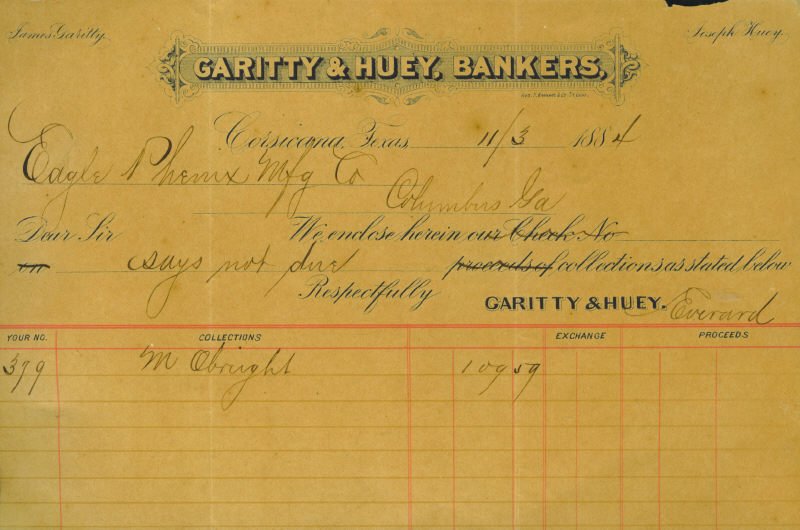 James Garitty. Joseph Huey.
GARITTY & HUEY, BANKERS,
Corsicana, Texas 11/3 1884
Eagle Phenix Mfg Co
Columbus Ga
Dear Sir We enclose herein our Check No
on says not due proceeds of collections as stated below
Respectfully GARITTY & HUEY. Everard
YOUR NO. COLLECTIONS EXCHANGE PROCEEDS
379 M Obright 109 59